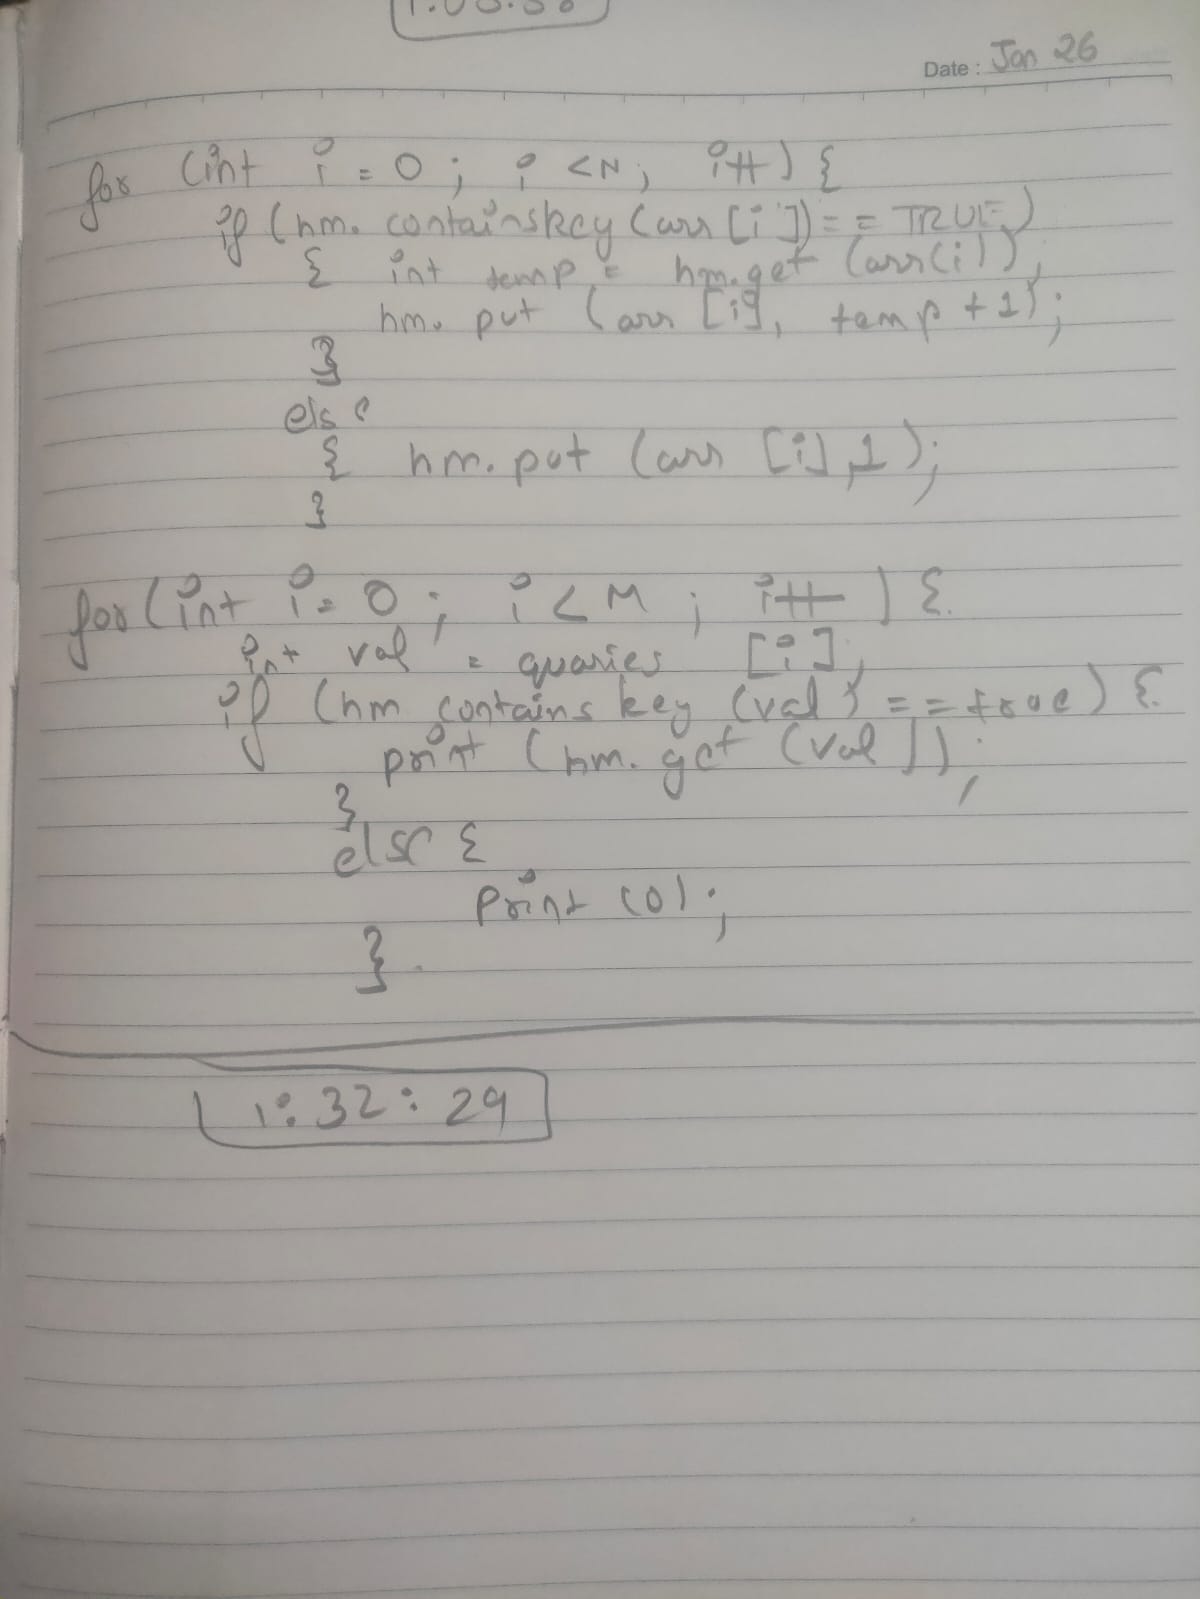 Date : Jan 26
for (int i = 0 ; i < N ; i++) {
if (hm. containskey (arr [i]) == TRUE)
{ int temp = hm.get (arr(i));
hm. put (arr [i], temp + 1);
}
else
{ hm. put (arr [i], 1);
}
for (int i = 0 ; i < M ; i++ ) {
int val = quaries [i];
if (hm contains key (val) == true) {
print (hm. get (val));
}
else {
print (0);
}
1:32:29